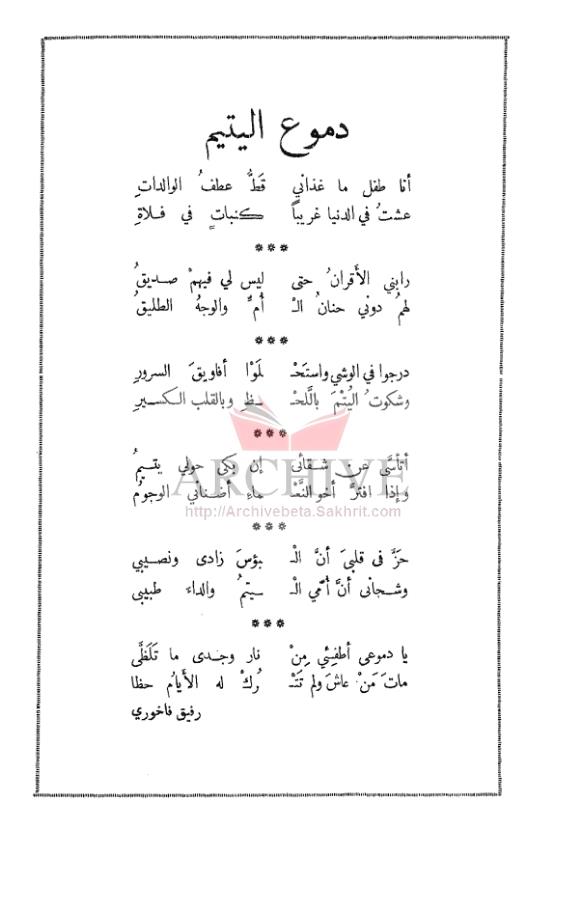 دموع اليتيم
أنا طفل ما غذاني قَطُّ عطفُ الوالداتِ
عشتُ في الدنيا غريباً كنباتٍ في فلاةِ
***
رابني الأقرانُ حتى ليس لي فيهمْ صديقُ
لهمُ دوني حنانُ الـ أُمِّ والوجهُ الطليقُ
***
درجوا في الوشي واستَحْـ ـلَمَوْا أفاويقَ السرورِ
وشكوتُ اليُتْمَ باللَّحْـ ـظِ وبالقلب الكسيرِ
***
أتأسَّى عن شقائي إن بكى حولي يتيمُ
وإذا افترَّ أخو النَّعْـ ـماءِ أضناني الوجومُ
***
حَزَّ في قلبيَ أنَّ الـ بؤسَ زادي ونصيبي
وشجاني أنَّ أُمّي الـ ـيتمُ والداءَ طبيبي
***
يا دموعي أطفئي مِنْ نار وجدي ما تَلَظَّى
ماتَ مَنْ عاشَ ولم تَتْـ ـرُكْ له الأيامُ حظا
رفيق فاخوري
ARCHIVE
http://Archivebeta.Sakhrit.com